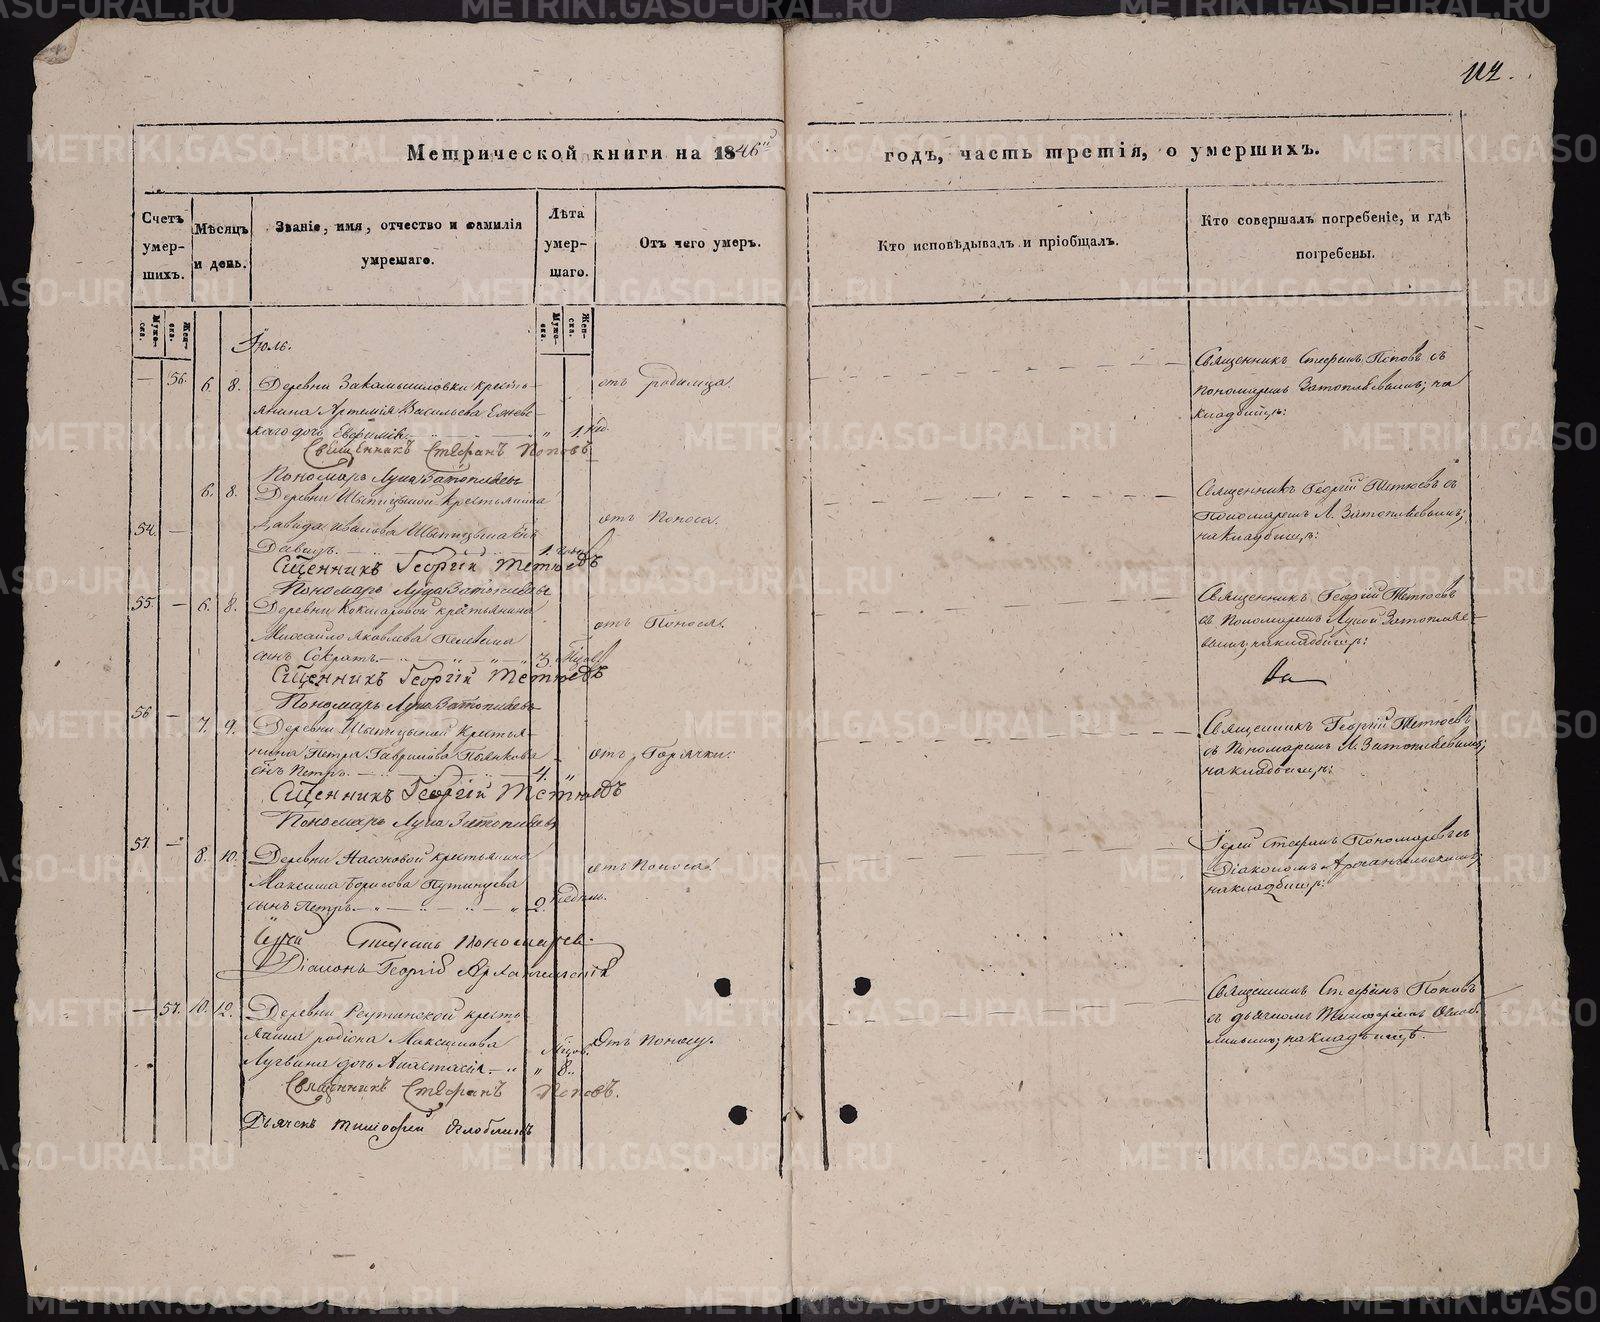 112.
Метрической книги на 1846й годъ, часть третія, о умершихъ.
Счетъ умер-шихъ.
Мѣсяцъ и день.
Званіе, имя, отчество и фамилія умрешаго.
Лѣта умер-шаго.
Отъ чего умеръ.
Кто исповѣдывалъ и пріобщалъ.
Кто совершалъ погребеніе, и гдѣ погребены.
Мужс-ска. Жен-ска. Мужс-ска. Жен-ска.
Іюль.
— 56. 6. 8. Деревни Закамышловки кресть- отъ родимца. Священникъ Стефанъ Поповъ съ
янина Артемія Васильева пономаремъ Затопляевымъ; на
дочь Евфимія — " 1. Нед. кладбищѣ:
Священникъ Стефанъ Поповъ
Пономарь Лука Затопляевъ
54. — 6. 8. Деревни Шипицыной крестьянина отъ Поноса. Священникъ Георгій Тетюевъ съ
Давида Иванова Шипицына сынъ Пономаремъ Л. Затопляевымъ;
Давидъ. — 1. на кладбищѣ:
Сщенникъ Георгій Тетюевъ
Пономарь Лука Затопляевъ
55. — 6. 8. Деревни Кокшаровой крестьянина отъ Поноса. Священникъ Георгій Тетюевъ
Михайло Яковлева Пелевина съ Пономаремъ Лукой Затопляе-
сынъ Сократъ. — 3. Мцов. вымъ, на кладбищѣ:
Сщенникъ Георгій Тетюевъ
Пономарь Лука Затопляевъ
56 — 7. 9. Деревни Шипицыной Крестья- отъ Горячки: Священникъ Георгій Тетюевъ
нина Петра Гаврилова сынъ Петръ. — 4. " съ Пономаремъ Л. Затопляевымъ;
на кладбищѣ:
Сщенникъ Георгій Тетюевъ
Пономарь Лука Затопляевъ
57. — 8. 10. Деревни Насоновой крестьянина отъ Поноса. Іерей Стефанъ Пономаревъ съ
Максима Борисова Путинцева Діакономъ Архангельскимъ;
сынъ Петръ. — 2. Недѣли. на кладбищѣ:
Іерей Стефанъ Пономаревъ.
Діаконъ Георгій Архангельскій
— 57. 10. 12. Деревни Реутинской кресть- Отъ Поносу. Священникъ Стефанъ Поповъ
янина Родіона Максимова Мцов. съ дьячкомъ Тимофеемъ Оглоб-
дочь Анастасія — " " 8. линымъ; на кладбищѣ.
Священникъ Стефанъ Поповъ.
Дьячекъ Тимофей Оглоблинъ
METRIKI.GASO-URAL.RU